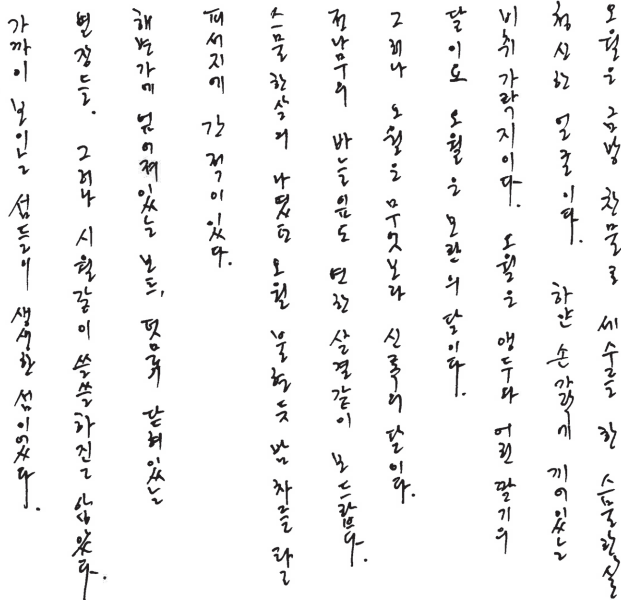 오월은 금방 찬물로 세수를 한 스물한 살
청신한 얼굴이다. 하얀 손가락에 끼어있는
비취 가락지이다. 오월은 앵두다 어린 딸기의
달이요 오월은 모란의 달이다.
그러나 오월은 무엇보다 신록의 달이다.
전나무의 바늘잎도 연한 살결같이 보드랍다.
스물 한 살의 나였던 오월 불현듯 밤 차를 타고
피서지에 간 적이 있다.
해변가에 엎어져있는 보트, 덧문이 닫혀있는
별장들. 그러나 시월같이 쓸쓸하진 않았다.
가까이 보이는 섬들이 생생한 섬이었다.